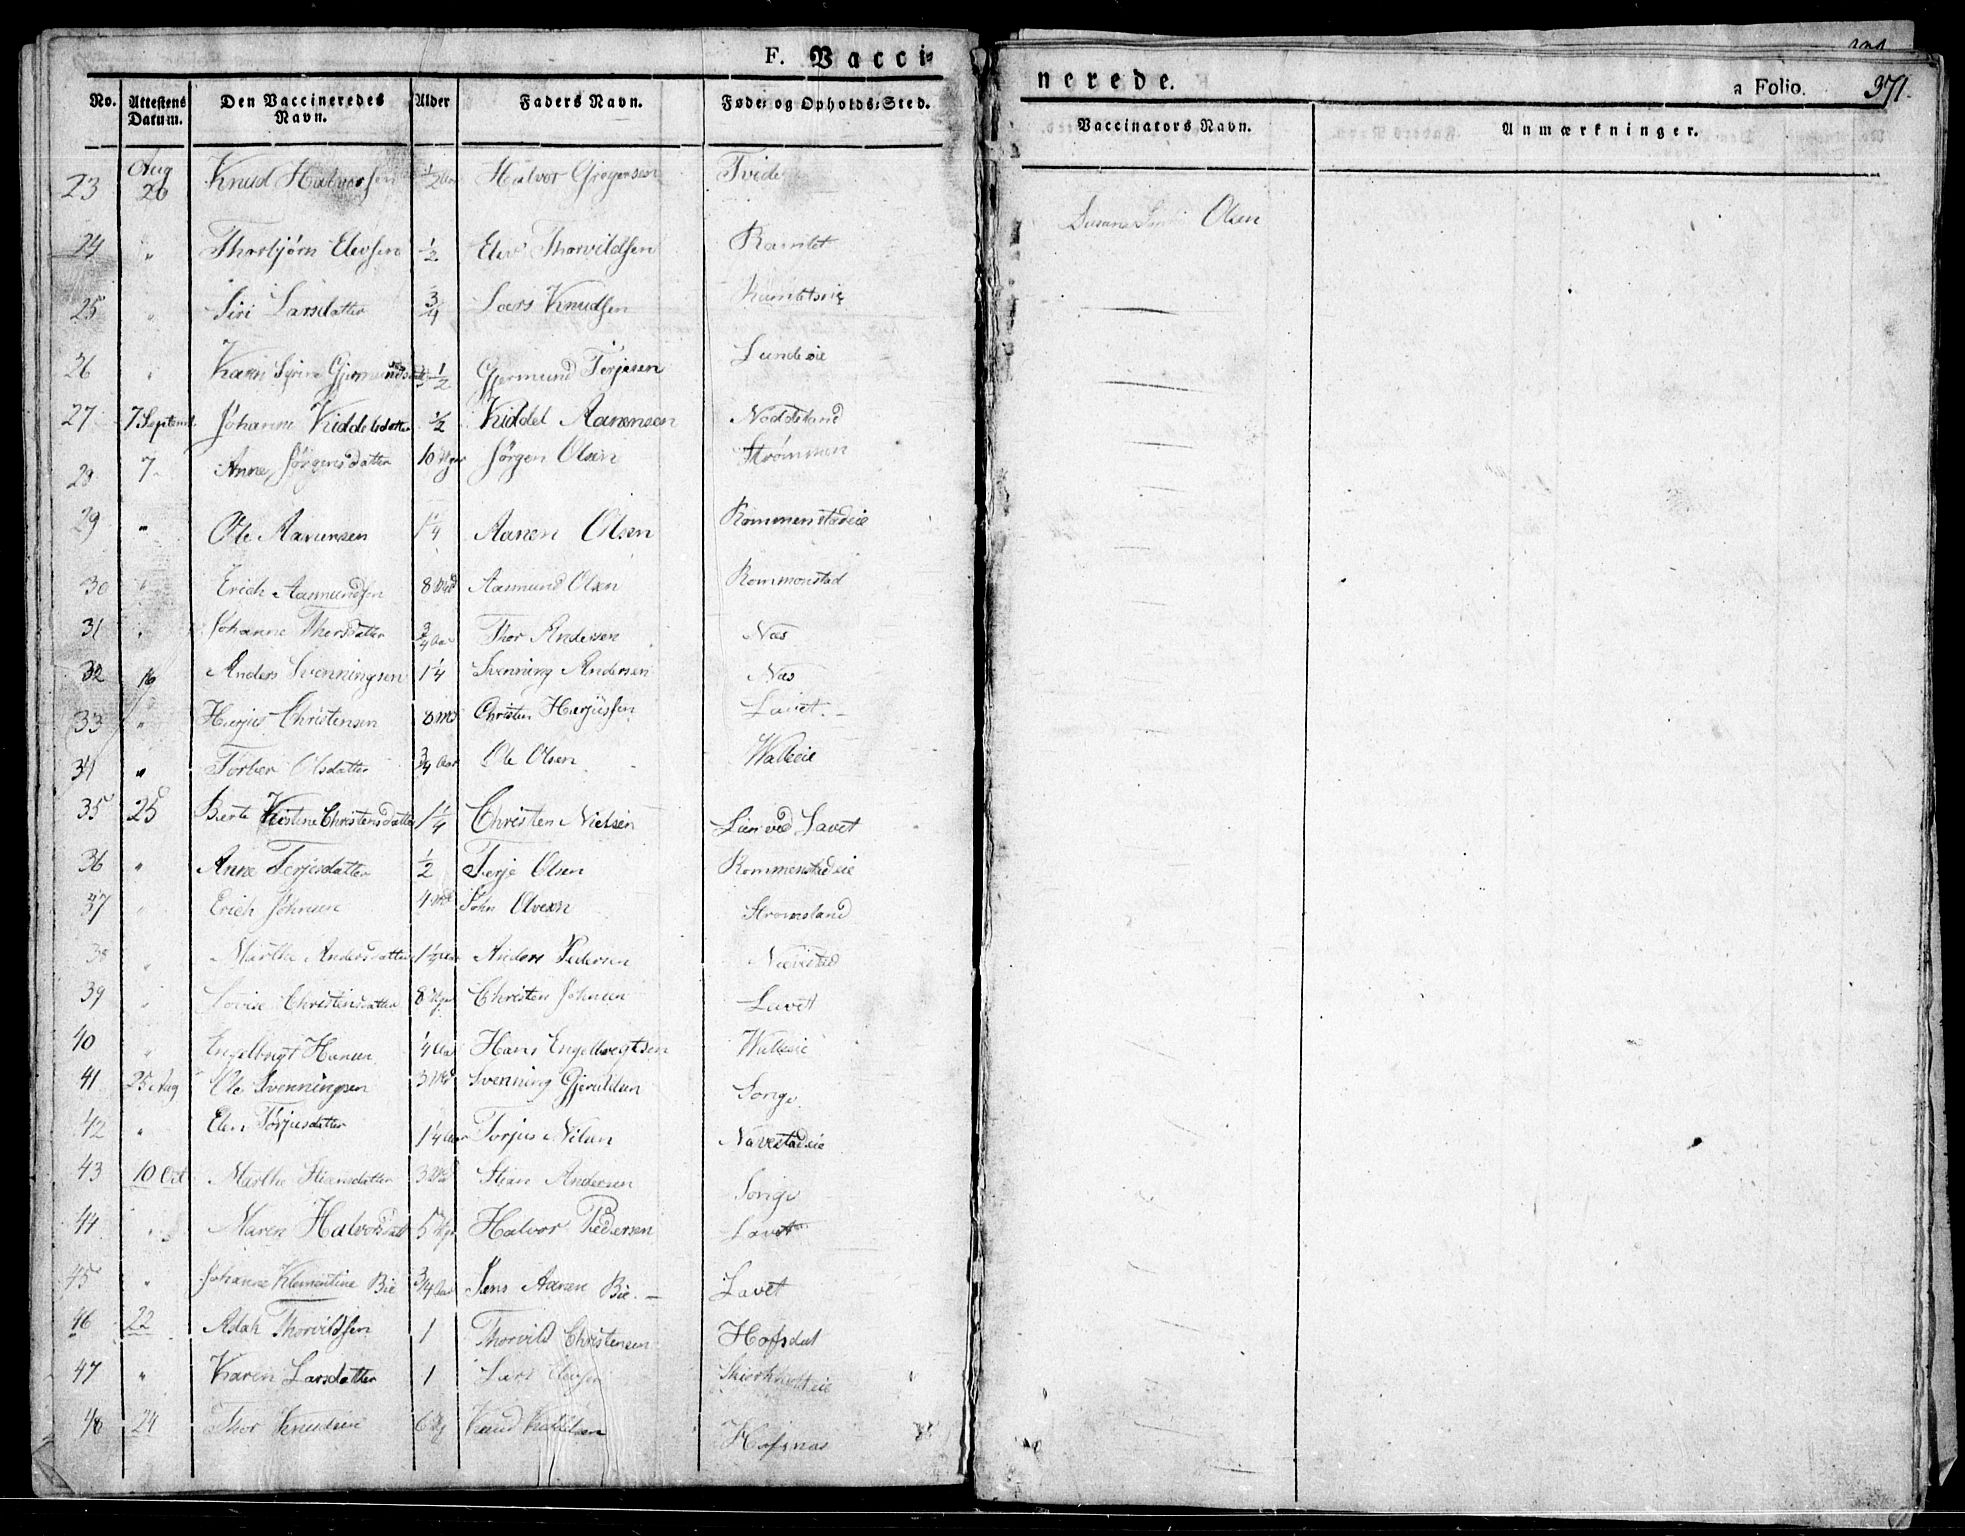 F. Vacci=
nerede.
a Folio. 371.
No. Attestens Datum. Den Vaccineredes Navn. Alder Faders Navn. Føde= og Opholds=Sted. Vaccinators Navn. Anmærkninger.
23 Aug 26 Knud Halvorsen 1/2 Aar Halvor Gregersen Tvide Olsen
24 " Thorbjørn Elevsen 1/2 Elev Thorvildsen Ramlet
25 " Siri Larsdatter 3/4 Lars Knudsen
26 " Karen Gjermundsdatter 1/2 Gjermund Terjesen Lundeeie
27 7 Septemb. Johanne Kiddelsdatter 1/2 Kiddel Aanensen Noddeland
28 7 Anne Jørgensdatter 10 Uger Jørgen Olsen Strømmen
29 " Ole Aanensen 1 1/4 Aanen Olsen Rommenstadeie
30 " Erich Aasmundsen 8 Md Aasmund Olsen Rommenstad
31 " Johanne Thorsdatter 3/4 Aar Thor Andersen Næs
32 16 Anders Svenningsen 1 1/4 Svenning Andersen Næs
33 " Herjus Christensen 8 Md Christen Herjussen Lavet
34 " Torber Olsdatter 3/4 Aar Ole Olsen Walleeie
35 25 Berte Kirstine Christensdatter 1 1/4 Christen Nielsen Lien ved Lavet
36 " Anne Terjesdatter 1/2 Terje Olsen Rommenstadeie
37 " Erich Johnsen 4 Md John Olversen Stromsland
38 " Marthe Andersdatter 1 1/2 Aar Anders Pedersen Nævestad
39 " Lovise Christensdatter 8 Uger Christen Johnsen Lavet
40 " Engelbregt Hansen 1/4 Aar Hans Engelbregtsen Walleeie
41 25 Aug Ole Svenningsen 3 Md Svenning Gjeruldsen Songe
42 " Elen Torjusdatter 1 1/4 Aar Torjus Nilsen Navestadeie
43 10 Oct Marthe Steansdatter 3 Md Stean Andersen Songe
44 " Maren Halvorsdatt 5 Uger Halvor Pedersen Lavet
45 " Johanne Klementine Bie 3/4 Aar Jens Aanen Bie. Lavet
46 22 Adah Thorvildsen 1 Thorvild Christensen Hofsdal
47 " Karen Larsdatter 1 Lars Elevsen
48 24 Thor Knudsen 6 Ug Knud Hofsnas